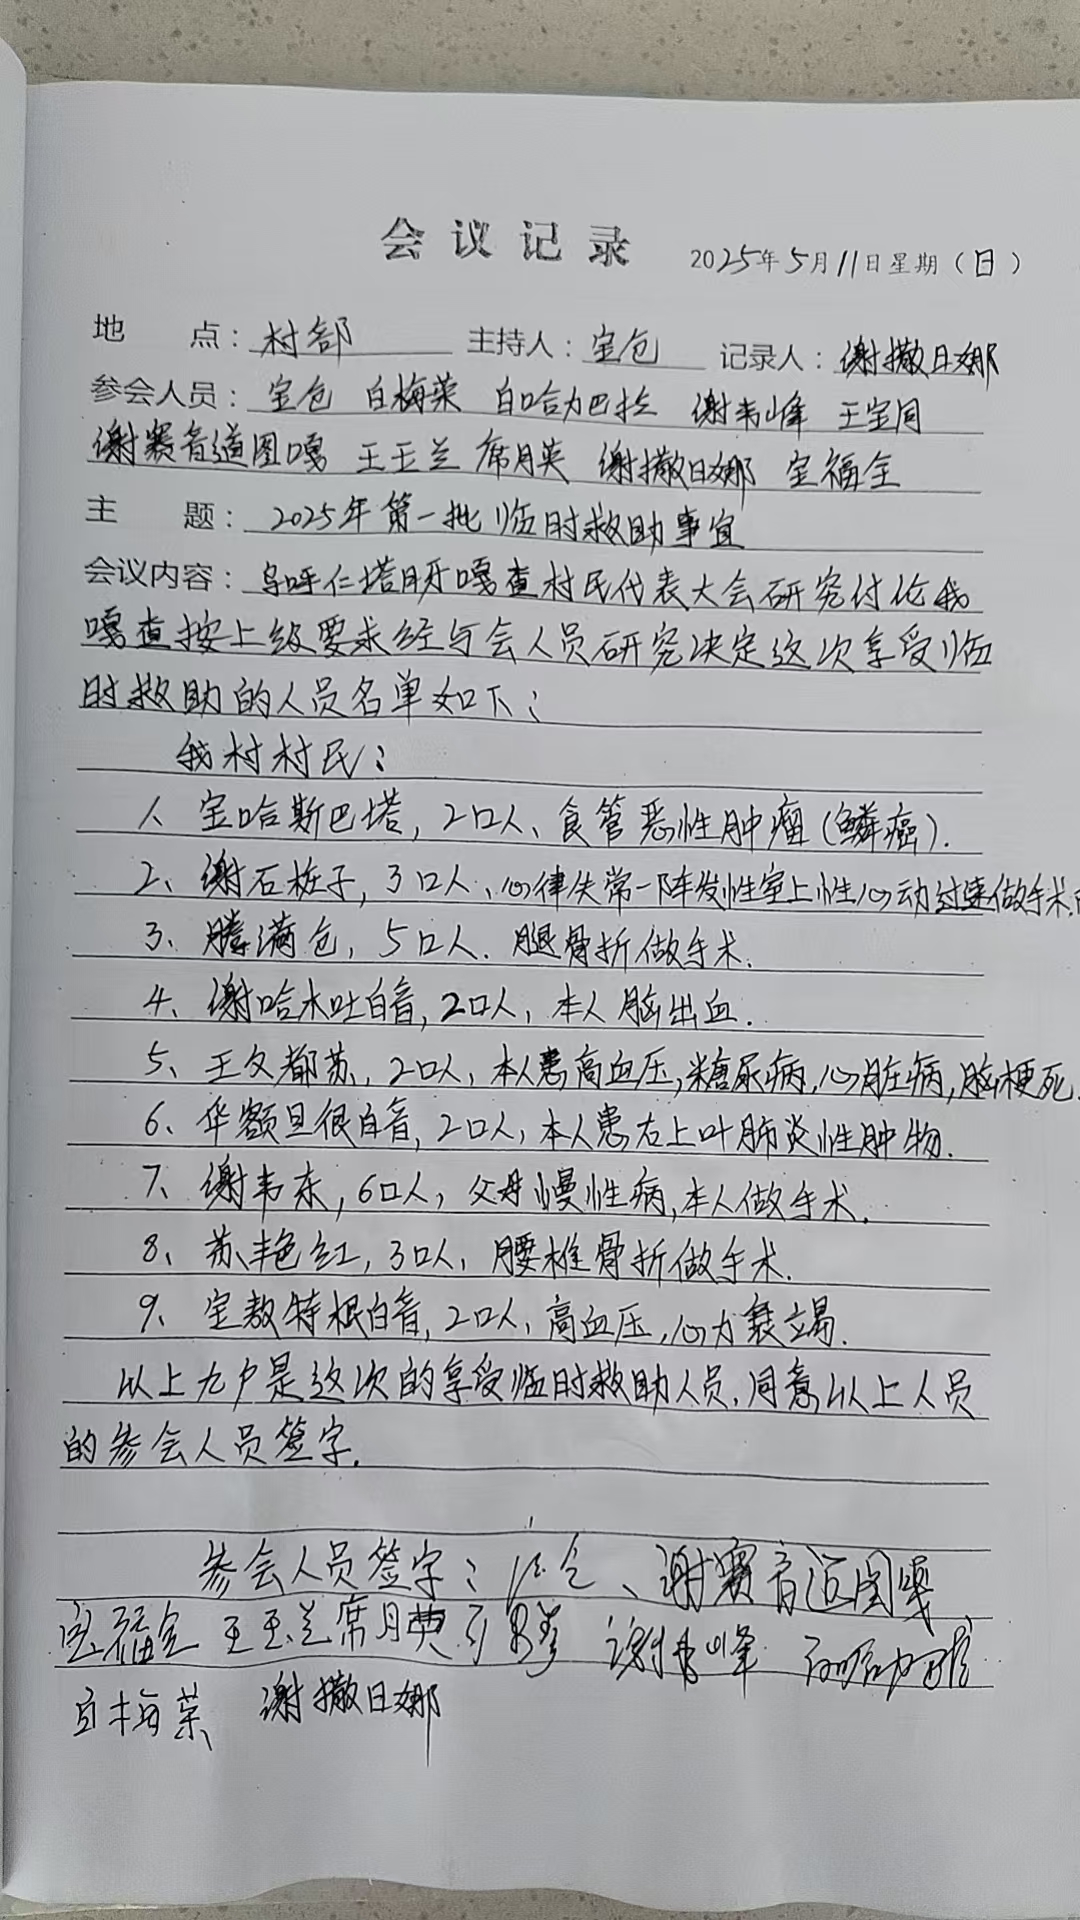 会议记录 2025年5月11日星期(日)
地 点: 村部 主持人: 宝仓 记录人: 谢撒日娜
参会人员: 宝仓 白梅荣 白哈力巴拉 谢韦峰 王宝同
谢赛音道图嘎 王玉兰 席月英 谢撒日娜 宝福全
主 题: 2025年第一批临时救助事宜
会议内容: 乌呼仁塔拜嘎查村民代表大会研究讨论我
嘎查按上级要求经与会人员研究决定这次享受临
时救助的人员名单如下:
我村村民:
1、宝哈斯巴塔,2口人、食管恶性肿瘤(鳞癌).
2、谢石桩子,3口人、心律失常-阵发性室上性心动过速做手术
3、腾满仓,5口人.腿骨折做手术.
4、谢哈木吐白音,2口人,本人脑出血.
5、王文都苏,2口人,本人患高血压,糖尿病,心脏病,脑梗死.
6、华额旦很白音,2口人,本人患右上叶肺炎性肿物.
7、谢韦东,6口人,父母慢性病,本人做手术.
8、苏艳红,3口人,腰椎骨折做手术.
9、宝敖特根白音,2口人,高血压,心力衰竭.
以上九户是这次的享受临时救助人员,同意以上人员
的参会人员签字.
参会人员签字: 宝仓、谢赛音道图嘎
宝福全 王玉兰 席月英 谢韦峰
白梅荣 谢撒日娜